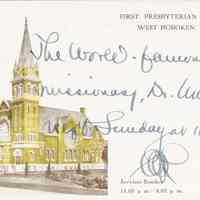 FIRST PRESBYTERIAN
WEST HOBOKEN,
The World-famous
missionary, Dr.
next Sunday at
Services Sunday
11.00 a. m.